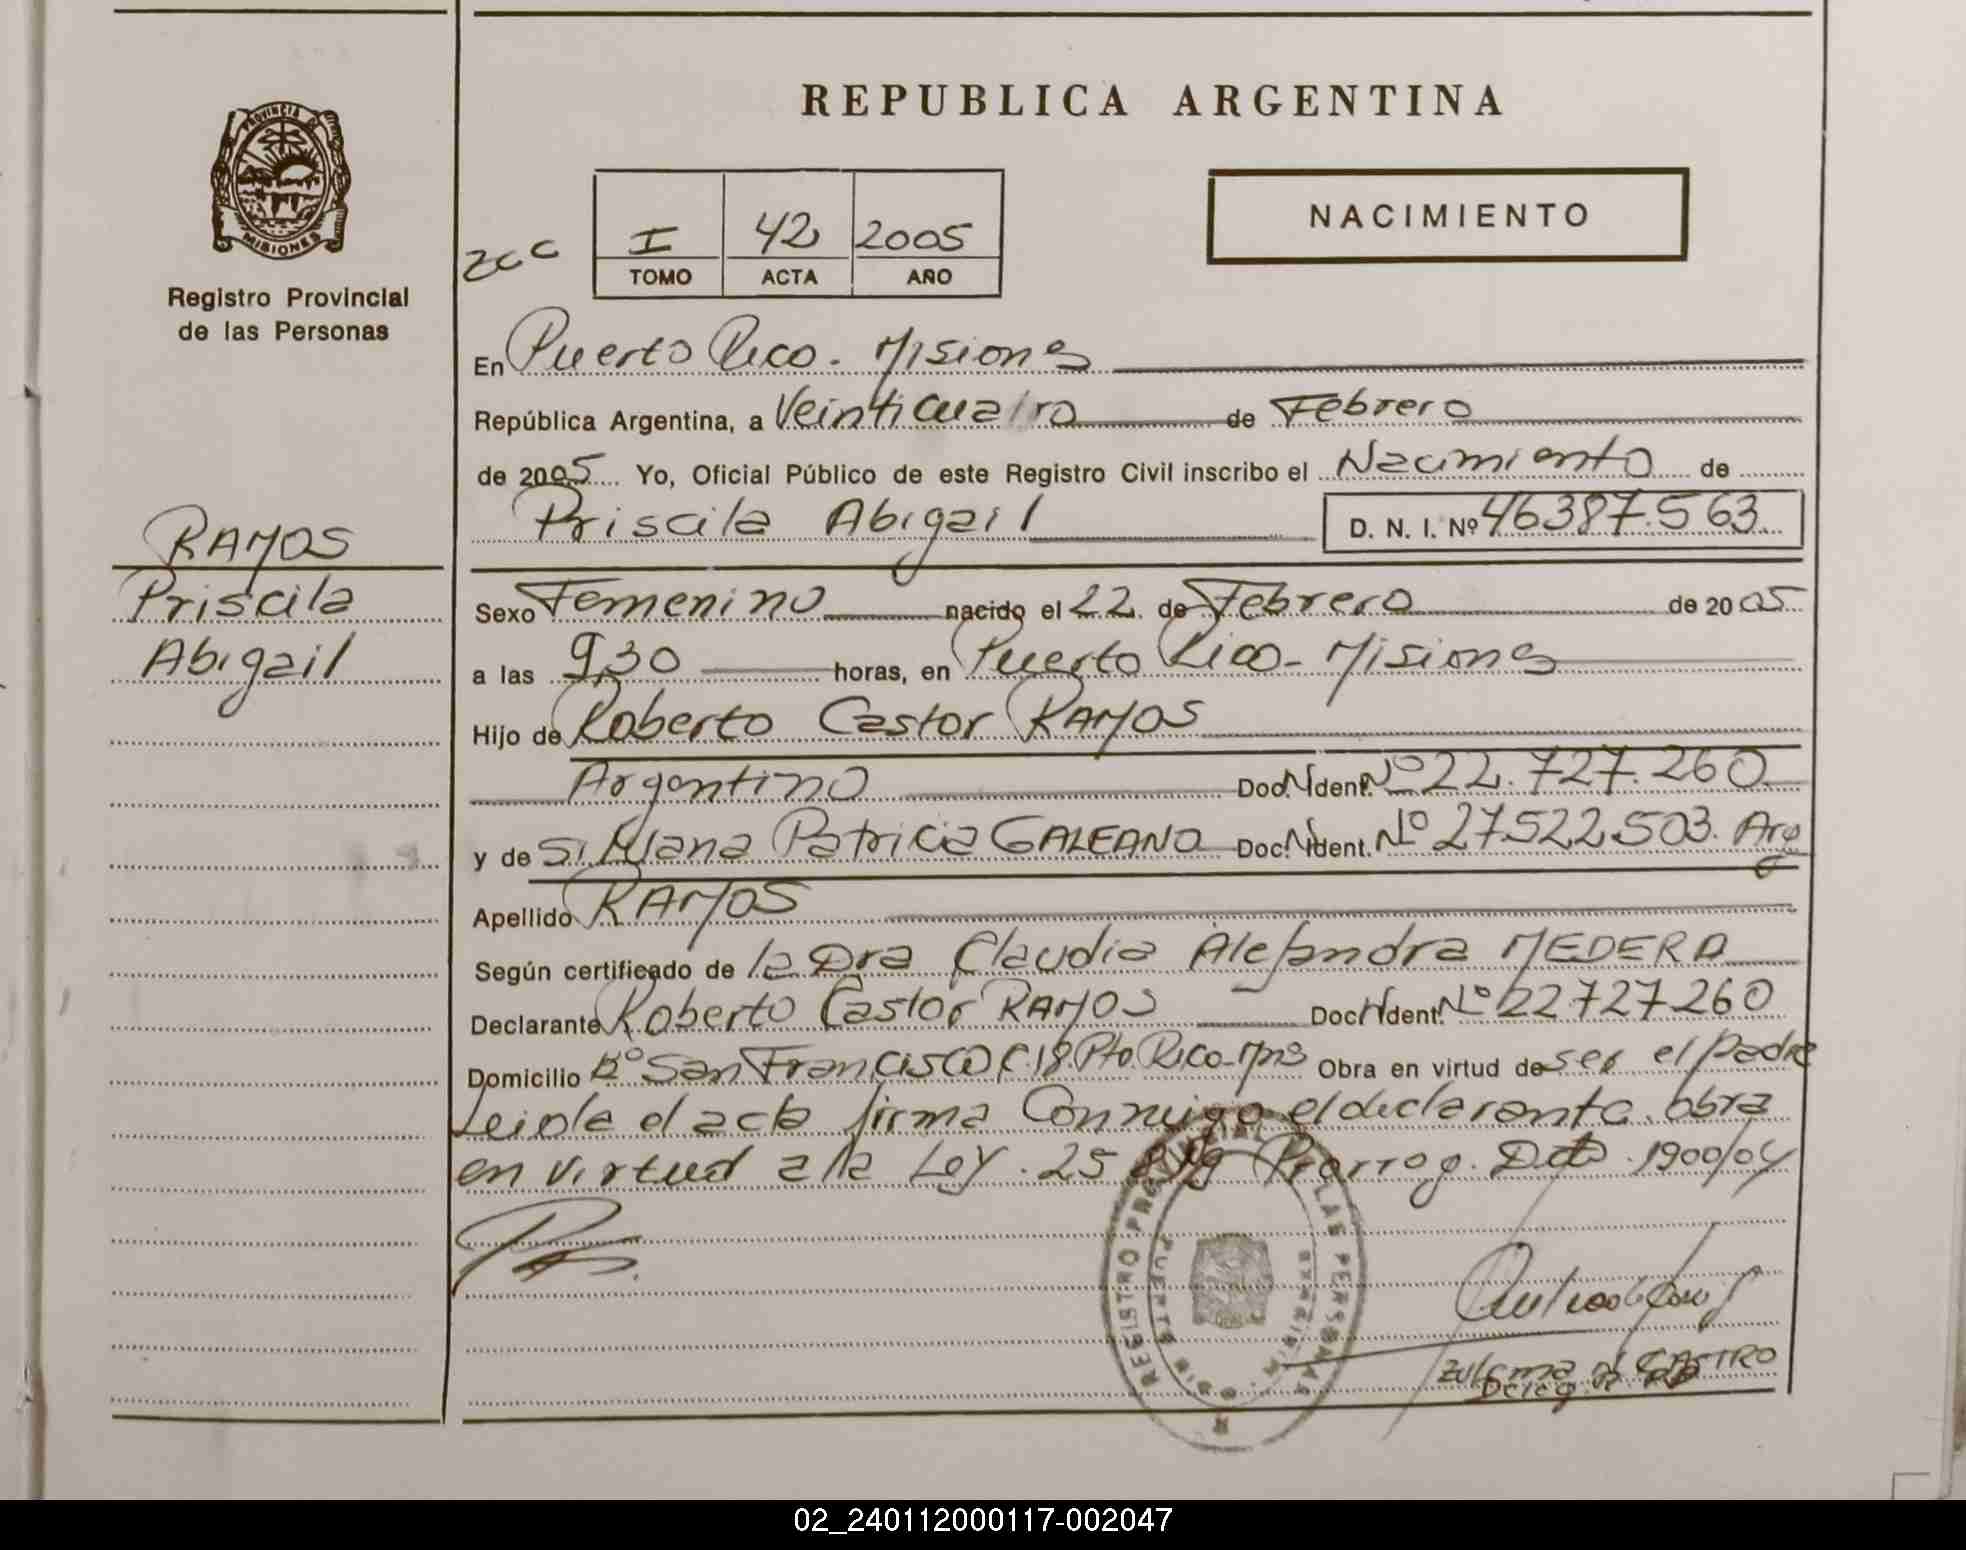 REPUBLICA ARGENTINA
PROVINCIA DE
MISIONES
Registro Provincial
de las Personas
NACIMIENTO
I 42 2005
TOMO ACTA AÑO
En Puerto Rico - Misiones
República Argentina, a Veinticuatro de Febrero
de 2005 Yo, Oficial Público de este Registro Civil inscribo el Nacimiento de
Priscila Abigail D. N. I. Nº 46387.563
RAMOS
Priscila
Abigail
Sexo Femenino nacido el 22 de Febrero de 2005
a las 9,30 horas, en Puerto Rico - Misiones
Hijo de Roberto Castor RAMOS
Argentino Doc. N Ident. Nº 22.727.260
y de Silviana Patricia GALEANO Doc. N Ident. Nº 27522503. Arg
Apellido RAMOS
Según certificado de la Dra Claudia Alejandra MEDERA
Declarante Roberto Castor RAMOS Doc N Ident. Nº 22727260
Domicilio Bº San Francisco C.18. Pto. Rico - Mns Obra en virtud de ser el padre
Leida el acta firma Conmigo el declarante. obra
en virtud a la Ley. 25 819 Prorrog. Dto. 1900/04
REGISTRO PROVINCIAL DE LAS PERSONAS
Zulema de CASTRO
Deleg.
02_240112000117-002047